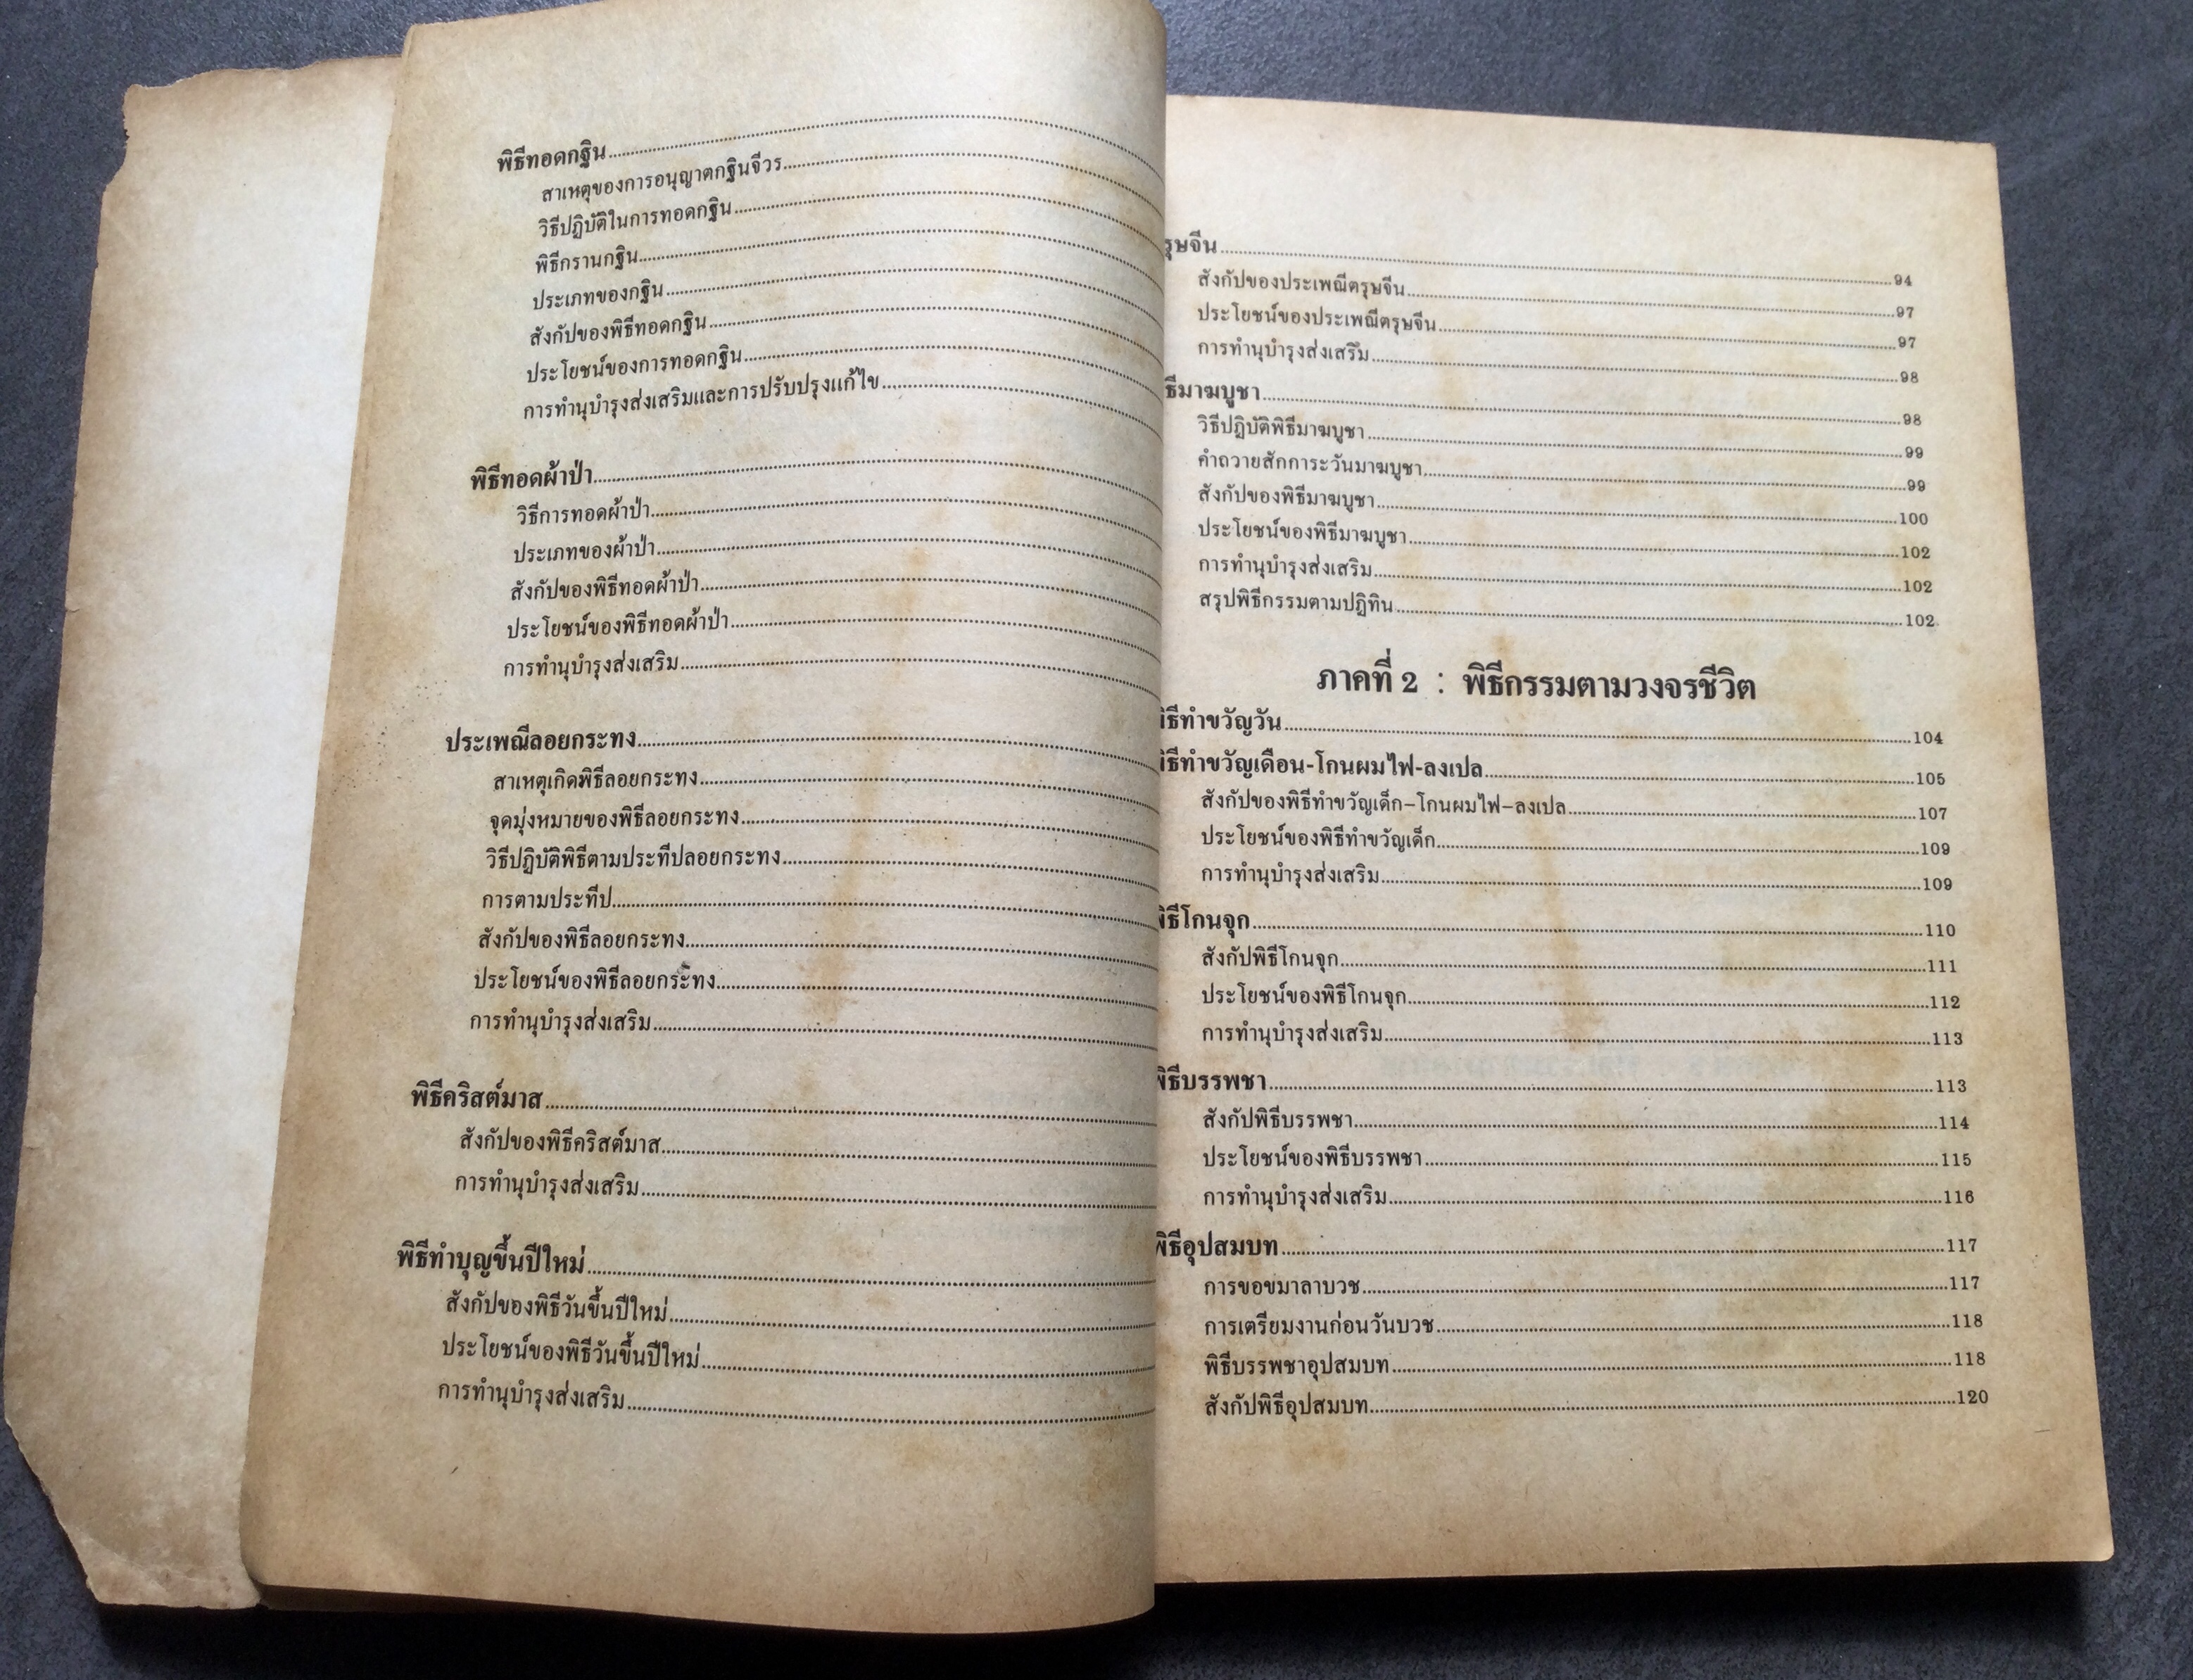 พิธีทอดกฐิน
สาเหตุของการอนุญาตกฐินจีวร
วิธีปฏิบัติในการทอดกฐิน
พิธีกรานกฐิน
ประเภทของกฐิน
สังกัปของพิธีทอดกฐิน
ประโยชน์ของการทอดกฐิน
การทำนุบำรุงส่งเสริมและการปรับปรุงแก้ไข
พิธีทอดผ้าป่า
วิธีการทอดผ้าป่า
ประเภทของผ้าป่า
สังกัปของพิธีทอดผ้าป่า
ประโยชน์ของพิธีทอดผ้าป่า
การทำนุบำรุงส่งเสริม
ประเพณีลอยกระทง
สาเหตุเกิดพิธีลอยกระทง
จุดมุ่งหมายของพิธีลอยกระทง
วิธีปฏิบัติพิธีตามประทีปลอยกระทง
การตามประทีป
สังกัปของพิธีลอยกระทง
ประโยชน์ของพิธีลอยกระทง
การทำนุบำรุงส่งเสริม
พิธีคริสต์มาส
สังกัปของพิธีคริสต์มาส
การทำนุบำรุงส่งเสริม
พิธีทำบุญขึ้นปีใหม่
สังกัปของพิธีวันขึ้นปีใหม่
ประโยชน์ของพิธีวันขึ้นปีใหม่
การทำนุบำรุงส่งเสริม
รุษจีน 94
สังกัปของประเพณีตรุษจีน 97
ประโยชน์ของประเพณีตรุษจีน 97
การทำนุบำรุงส่งเสริม 98
ธีมาฆบูชา 98
วิธีปฏิบัติพิธีมาฆบูชา 99
คำถวายสักการะวันมาฆบูชา 99
สังกัปของพิธีมาฆบูชา 100
ประโยชน์ของพิธีมาฆบูชา 102
การทำนุบำรุงส่งเสริม 102
สรุปพิธีกรรมตามปฏิทิน 102
ภาคที่ 2 : พิธีกรรมตามวงจรชีวิต
พิธีทำขวัญวัน 104
พิธีทำขวัญเดือน-โกนผมไฟ-ลงเปล 105
สังกัปของพิธีทำขวัญเด็ก-โกนผมไฟ-ลงเปล 107
ประโยชน์ของพิธีทำขวัญเด็ก 109
การทำนุบำรุงส่งเสริม 109
พิธีโกนจุก 110
สังกัปพิธีโกนจุก 111
ประโยชน์ของพิธีโกนจุก 112
การทำนุบำรุงส่งเสริม 113
พิธีบรรพชา 113
สังกัปพิธีบรรพชา 114
ประโยชน์ของพิธีบรรพชา 115
การทำนุบำรุงส่งเสริม 116
พิธีอุปสมบท 117
การขอขมาลาบวช 117
การเตรียมงานก่อนวันบวช 118
พิธีบรรพชาอุปสมบท 118
สังกัปพิธีอุปสมบท 120